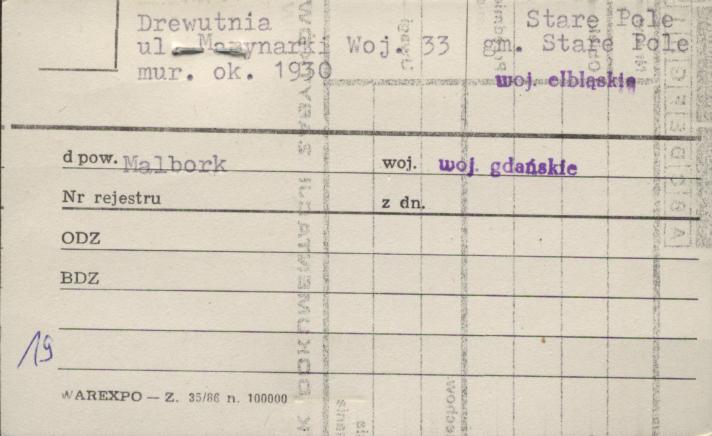 Drewutnia
ul. Marynarki Woj. 33
mur. ok. 1930
Stare Pole
gm. Stare Pole
woj. elbląskie
d pow. Malbork woj. woj. gdańskie
Nr rejestru z dn.
ODZ
BDZ
19
WAREXPO — Z. 35/86 n. 100000